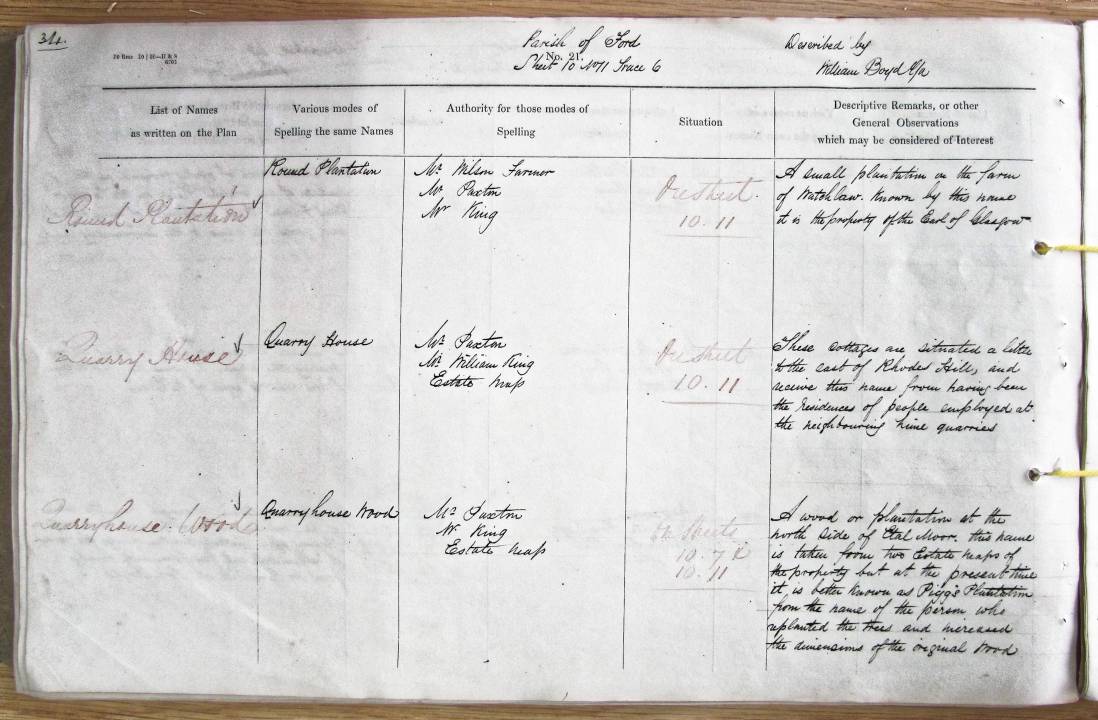 34.
Parish of Ford
No. 21.
Sheet 10 No 11 Trace 6
Described by
William Boyd C/a
List of Names
as written on the Plan
Various modes of
Spelling the same Names
Authority for those modes of
Spelling
Situation
Descriptive Remarks, or other
General Observations
which may be considered of Interest
Round Plantation
Round Plantation
Mr Wilson Farmer
Mr Paxton
Mr King
On Sheet
10. 11
A small plantation on the farm
of Watchlaw. Known by this name
it is the property of the Earl of Glasgow
Quarry House
Quarry House
Mr Paxton
Mr William King
Estate Map
On Sheet
10. 11
These cottages are situated a little
to the east of Rhodes Hill, and
receive this name from having been
the residences of people employed at
the neighbouring Lime quarries
Quarryhouse Wood
Quarryhouse Wood
Mr Paxton
W. King
Estate Map
On Sheets
10. 7 &
10. 11
A wood or plantation at the
north side of Etal Moor. this name
is taken from two Estate Maps of
the property but at the present time
it is better known as Pigg's Plantation
from the name of the person who
replanted the trees and increased
the dimensions of the original Wood